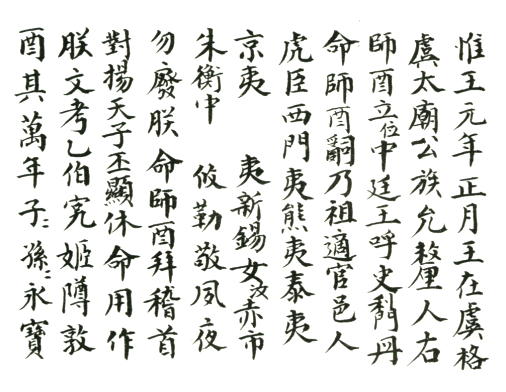 惟王元年正月王在虞格
虞太廟公族允釐人右
師酉立位中廷王呼史丹
命師酉嗣乃祖適官邑人
虎臣西門夷熊夷泰夷
京夷 夷新錫女汝赤巿
朱衡中 攸勒敬夙夜
勿廢朕命師酉拜稽首
對揚天子丕顯休命用作
朕文考乙伯宄姬敦
酉其萬年子〻孫〻永寶